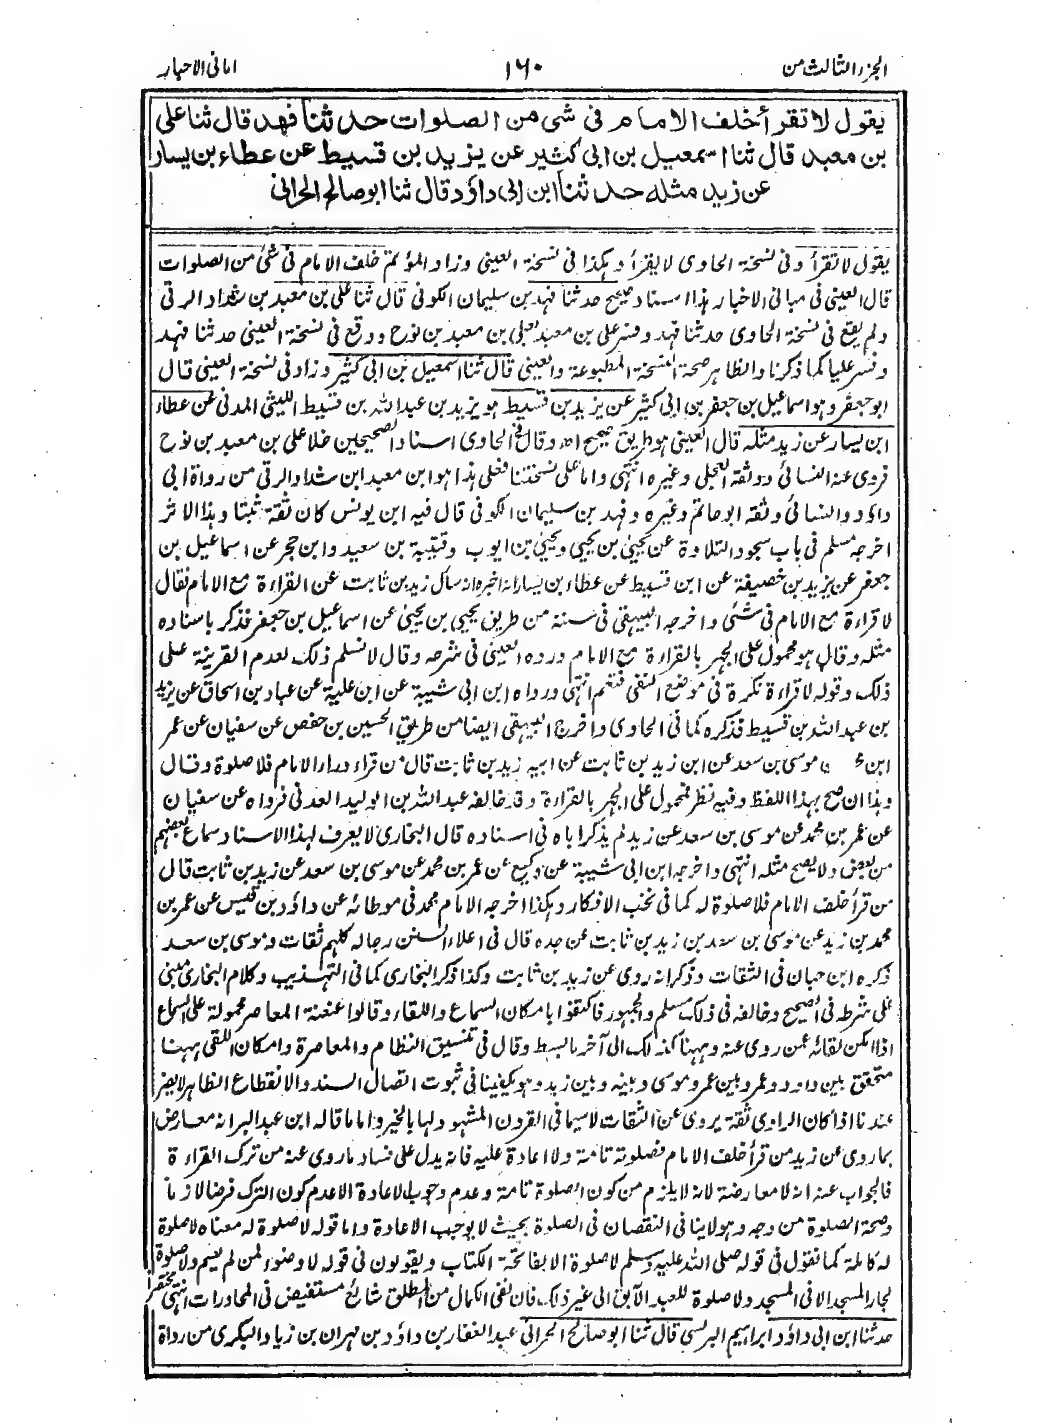 الجزء الثالث من
١٦٠
امانى الاحبار
يقول لا تقرأ خلف الامام فى شىء من الصلوات حدثنا فهد قال ثنا على
بن معبد قال ثنا اسمعيل بن ابى كثير عن يزيد بن قسيط عن عطاء بن يسار
عن زيد مثله حدثنا ابن ابى داؤد قال ثنا ابو صالح الحرانى
يقول لا تقرأ وفى نسخة الحاوى لا يقرأ وهكذا فى نسخة العينى وزاد المؤتم خلف الامام فى شئ من الصلوات
قال العينى فى مبانى الاخبار هذا اسناد صحيح حدثنا فهد بن سليمان الكوفى قال ثنا على بن معبد بن شداد الرقى
ولم يقع فى نسخة الحاوى حدثنا فهد وفسر على بن معبد بعلى بن معبد بن نوح ووقع فى نسخة العينى حدثنا فهد
وفسر عليا كما ذكرنا والظاهر صحة النسخة المطبوعة والعينى قال ثنا اسمعيل بن ابى كثير وزاد فى نسخة العينى قال
ابو جعفر وهو اسماعيل بن جعفر بن ابى كثير عن يزيد بن قسيط هو يزيد بن عبد الله بن قسيط الليثى المدنى عن عطاء
ابن يسار عن زيد مثله قال العينى هو طريق صحيح اھ وقال فى الحاوى اسناد الصحيحين خلا على بن معبد بن نوح
فروى عنه النسائى ووثقه العجلى وغيره انتهى واما على نسختنا فعلى هذا هو ابن معبد ابن شداد الرقى من رواة ابى
داؤد والنسائى وثقه ابو حاتم وغيره وفهد بن سليمان الكوفى قال فيه ابن يونس كان ثقة ثبتا وهذا الاثر
اخرجه مسلم فى باب سجود التلاوة عن يحيى بن يحيى ويحيى بن ايوب وقتيبة بن سعيد وابن حجر عن اسماعيل بن
جعفر عن يزيد بن خصيفة عن ابن قسيط عن عطاء بن يسار انه اخبره انه سأل زيد بن ثابت عن القراءة مع الامام فقال
لا قراءة مع الامام فى شئ واخرجه البيهقى فى سننه من طريق يحيى بن يحيى عن اسماعيل بن جعفر فذكر باسناده
مثله وقال هو محمول على الجهر بالقراءة مع الامام ورده العينى فى شرحه وقال لا نسلم ذلك لعدم القرينة على
ذلك وقوله لا قراءة نكرة فى موضع النفى فتعم انتهى ورواه ابن ابى شيبة عن ابن علية عن عباد بن اسحاق عن يزيد
بن عبد الله بن قسيط فذكره كما فى الحاوى واخرج البيهقى ايضا من طريق الحسين بن حفص عن سفيان عن عمر
ابن موسى بن سعد عن ابن زيد بن ثابت عن ابيه زيد بن ثابت قال من قراء وراء الامام فلا صلوة وقال
وهذا ان صح بهذا اللفظ وفيه نظر فمحمول على الجهر بالقراءة وقد خالفه عبد الله بن الوليد العدنى فرواه عن سفيان
عن عمر بن محمد عن موسى بن سعد عن زيد لم يذكر اباه فى اسناده قال البخارى لا يعرف لهذا الاسناد سماع بعضهم
من بعض ولا يصح مثله انتهى واخرجه ابن ابى شيبة عن وكيع عن عمر بن محمد عن موسى بن سعد عن زيد بن ثابت قال
من قرأ خلف الامام فلا صلوة له كما فى نخب الافكار وهكذا اخرجه الامام محمد فى موطائه عن داؤد بن قيس عن عمر بن
محمد بن زيد عن موسى بن سعد بن زيد بن ثابت عن جده قال فى اعلاء السنن رجاله كلهم ثقات وموسى بن سعد
ذكره ابن حبان فى الثقات وذكر انه روى عن زيد بن ثابت وكذا ذكر البخارى كما فى التهذيب وكلام البخارى مبنى
على شرطه فى الصحيح وخالفه فى ذلك مسلم والجمهور فاكتفوا بامكان السماع واللقاء وقالوا عنعنة المعاصر محمولة على السماع
اذا امكن لقائه عمن روى عنه وههنا كذلك الى آخر ما بسط وقال فى تنسيق النظام والمعاصرة وامكان اللقى ههنا
متحقق بين داود وعمرو بين عمر وموسى وبينه وبين زيد وهو يكفينا فى ثبوت اتصال السند والانقطاع الظاهر لا يضر
عندنا اذا كان الراوى ثقة يروى عن الثقات لا سيما فى القرون المشهود لها بالخير واما ما قاله ابن عبد البر انه معارض
بما روى عن زيد من قرأ خلف الامام فصلوته تامة ولا اعادة عليه فانه يدل على فساد ما روى عنه من ترك القراءة
فالجواب عنه انه لا معارضة لانه لا يلزم من كون الصلوة تامة وعدم وجوب الاعادة الا عدم كون الترك فرضا لازما
وصحة الصلوة من وجه وهو لا ينافى النقصان فى الصلوة بحيث لا يوجب الاعادة واما قوله لا صلوة له معناه لا صلوة
له كاملة كما نقول فى قوله صلى الله عليه وسلم لا صلوة الا بفاتحة الكتاب ويقولون فى قوله لا وضوء لمن لم يسم ولا صلوة
لجار المسجد الا فى المسجد ولا صلوة للعبد الآبق الى غير ذلك فان نفى الكمال من المطلق شائع مستفيض فى المحاورات انتهى مختصرا
حدثنا ابن ابى داؤد ابراهيم البرلسى قال ثنا ابو صالح الحرانى عبد الغفار بن داؤد بن مهران بن زياد البكرى من رواة